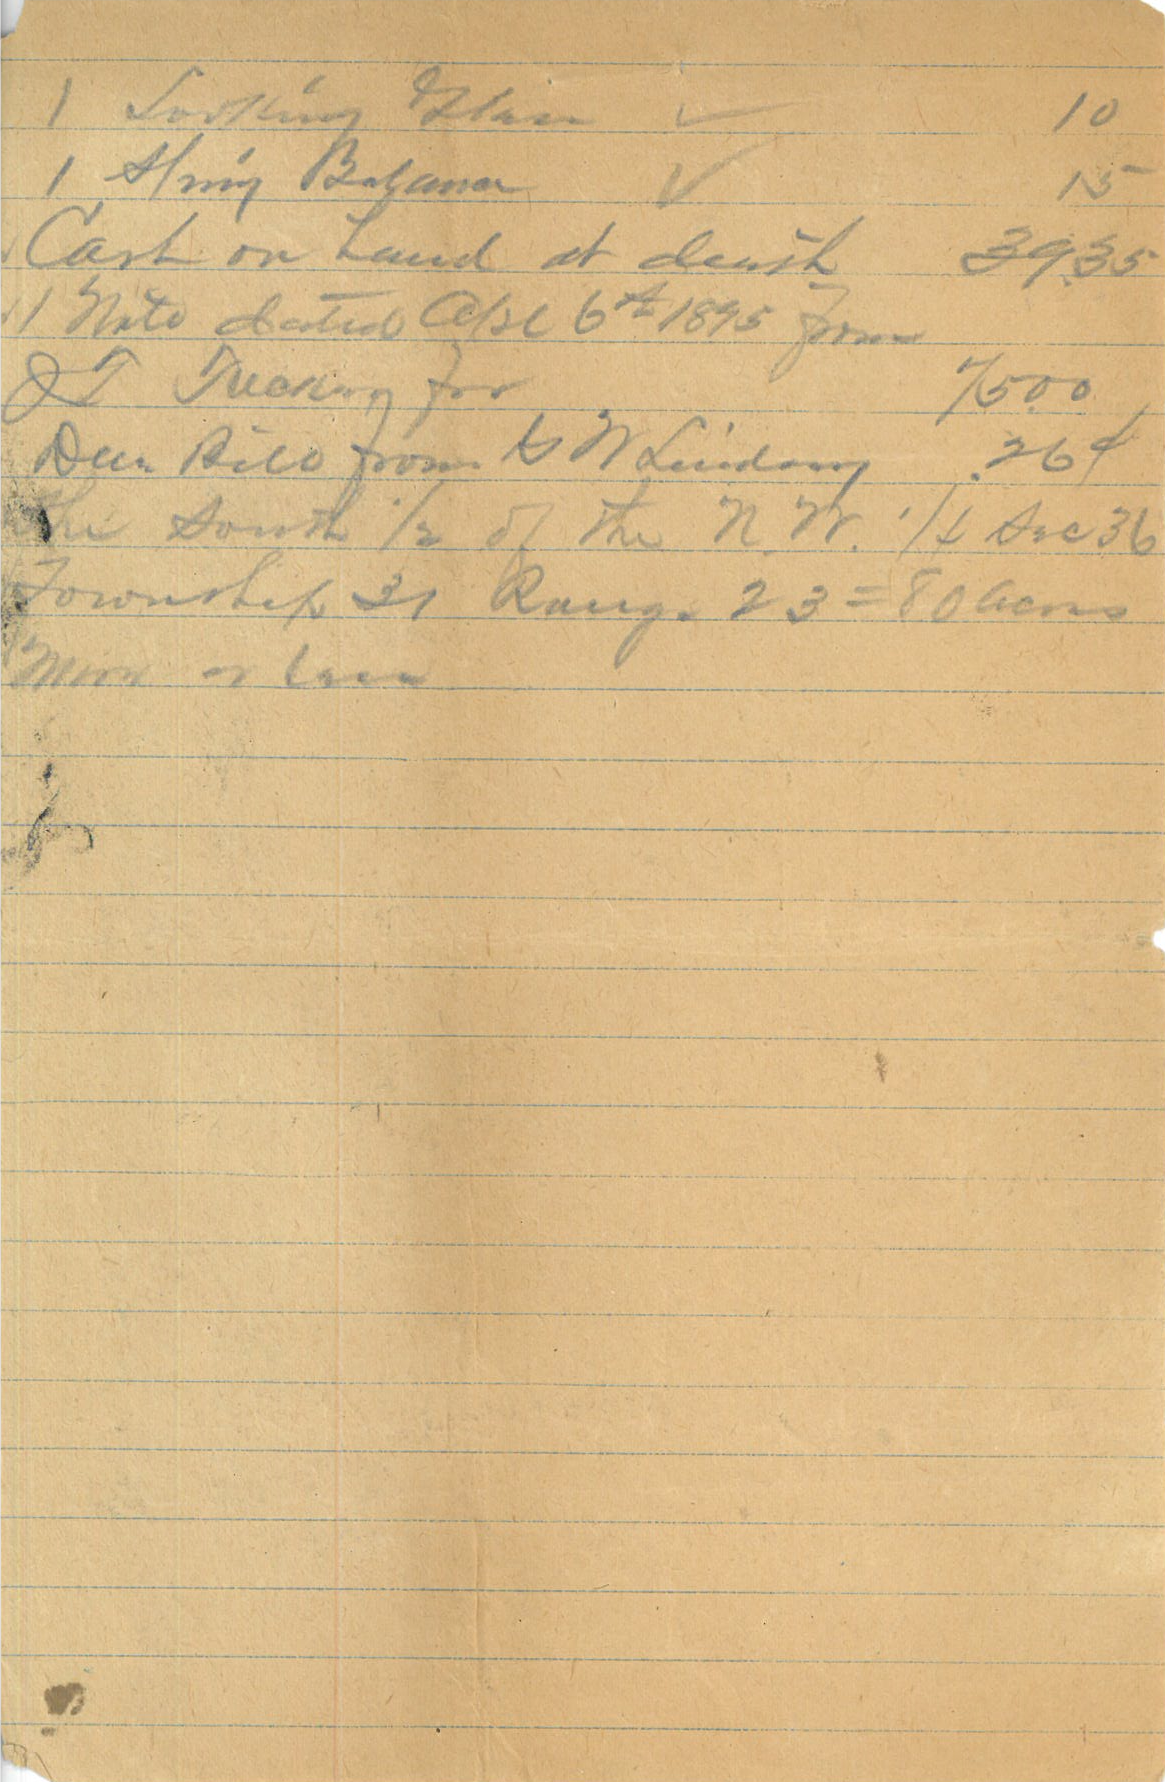 1 Looking Glass ✓ 10
1 Spring Balance ✓ 15
Cash on hand at death 39.35
1 Note dated Apl 6th 1895 from
J T for 75.00
Due Bill from G W Lindsay .26¢
The South 1/2 of the N.W. 1/4 Sec 36
Township 31 Range 23 = 80 acres
More or Less